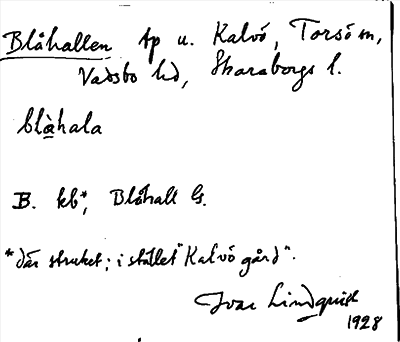 Blåhallen tp u. Kalvö, Torsö sn,
Vadsbo hd, Skaraborgs l.
blàhala
B. kb*, Blåhall G.
*där struket; i stället "Kalvö gård".
Ivar Lindquist
1928